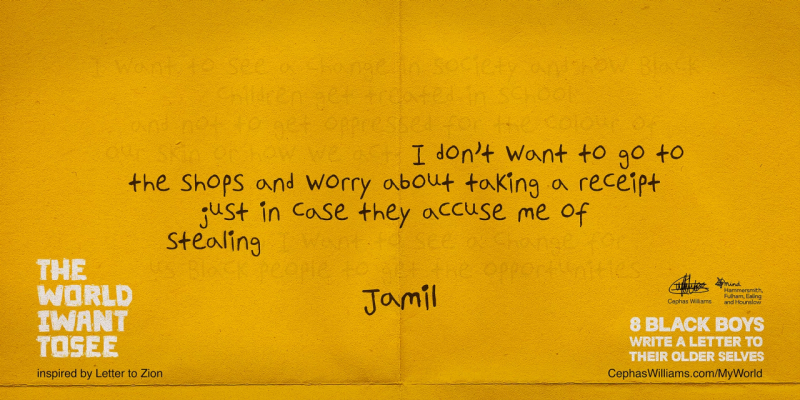 I want to see a change in society and how Black
children get treated in school
and not to get oppressed for the colour of
our skin or how we act. I don't want to go to
the shops and worry about taking a receipt
just in case they accuse me of
stealing I want to see a change to
us Black people to get the opportunities
Jamil
THE
WORLD
I WANT
TO SEE
inspired by Letter to Zion
Cephas Williams
mind
Hammersmith,
Fulham, Ealing
and Hounslow
8 BLACK BOYS
WRITE A LETTER TO
THEIR OLDER SELVES
CephasWilliams.com/MyWorld